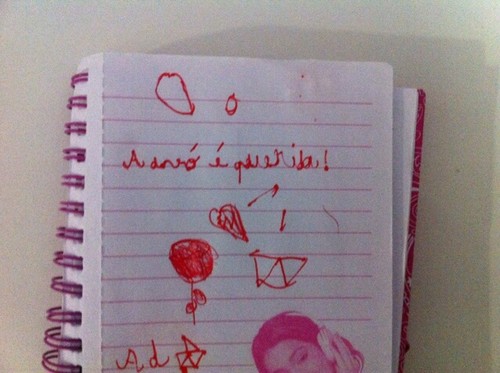 A avó é querida!
A d